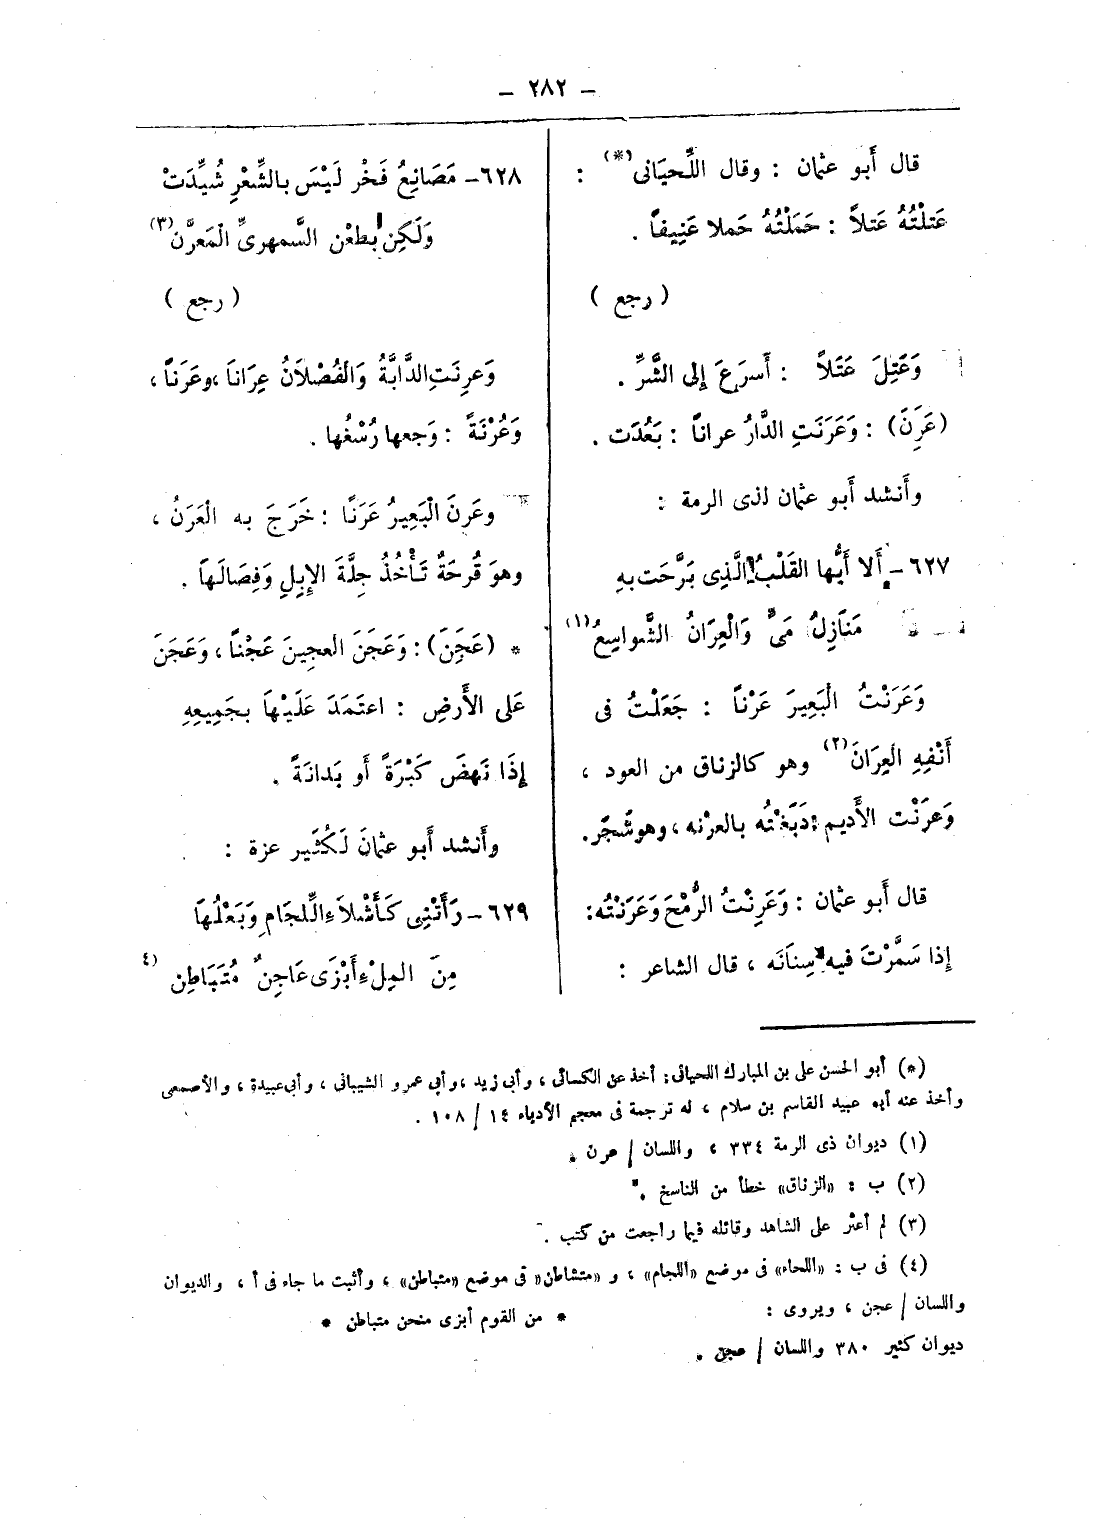 – ٢٨٢ –
قال أَبو عثمان : وقال اللِّحيَانى(*) :
عَتلْتُهُ عَتلاً : حَمَلْتُهُ حَملا عَنِيفاً .
( رجع )
وَعَتِلَ عَتَلاً : أَسرَعَ إِلى الشَّرِّ .
(عَرَِنَ) : وَعَرَنَتِ الدَّارُ عراناً : بَعُدَت .
وأَنشد أَبو عثمان لذى الرمة :
٦٢٧ – أَلا أَيُّها القَلْبُ الَّذِى بَرَّحَت بهِ
مَنَازِلُ مَىٍّ وَالْعِرَانُ الشَّواسِعُ(١)
وَعَرَنْتُ الْبَعِيرَ عَرْناً : جَعَلْتُ فى
أَنْفِهِ العِرَانَ(٢) وهو كالزناق من العود ،
وَعرَنْت الأَديم : دَبَغْتُه بالعرْنه ، وهو شَجَر.
قال أَبو عثمان : وَعَرِنْتُ الرُّمْحَ وَعَرَنتُه:
إذا سَمَّرْتَ فيه سِنانَه ، قال الشاعر :
٦٢٨ – مَصَانِعُ فَخْر لَيْسَ بالشِّعْرِ شُيِّدَتْ
وَلَكِن بطعْن السَّمهرىِّ الْمَعرَّن(٣)
( رجع )
وَعرِنَتِ الدَّابَّةُ وَالْفُصْلاَنُ عِرَاناَ ، وعَرَناً ،
وَعُرْنَةً : وَجعها رُسْغُها .
وعَرنَ الْبَعِيرُ عَرَنًا : خَرَجَ به الْعَرَنُ ،
وهوَ قُرحَةٌ تَأْخُذُ جِلَّةَ الإِبِلِ وَفِصَالَهاَ .
* (عَجَِنَ) : وَعَجَنَ العجِينَ عَجْناً ، وَعَجَنَ
عَلى الأَرضِ : اعتَمَدَ عَلَيْهاَ بجَمِيعِهِ
إِذَا نَهضَ كَبْرَةً أَو بَدانَةً .
وأَنشد أَبو عثمانَ لَكُثَير عزة :
٦٢٩ – رَأَتْنِى كَأَشْلاَءِ اللِّجَامِ وَبَعْلُهاَ
مِنَ المِلْءِ أَبْزَى عَاجِنٌ مُتَبَاطِن(٤
(*) أبو الحسن على بن المبارك اللحيانى: أخذ عن الكسائى ، وأبى زيد ، وأبى عمرو الشيبانى ، وأبى عبيدة ، والأصمعى
وأخذ عنه أبو عبيد القاسم بن سلام ، له ترجمة فى معجم الأدباء ١٤ / ١٠٨ .
(١) ديوان ذى الرمة ٣٣٤ ، واللسان / عرن .
(٢) ب : «الزناق» خطأ من الناسخ .
(٣) لم أعثر على الشاهد وقائله فيما راجعت من كتب .
(٤) فى ب : «اللحاء» فى موضع «اللجام» ، و «متشاطن» فى موضع «متباطن» ، وأثبت ما جاء فى أ ، والديوان
واللسان / عجن ، ويروى : * من القوم أبزى منحن متباطن *
ديوان كثير ٣٨٠ واللسان / عجن .